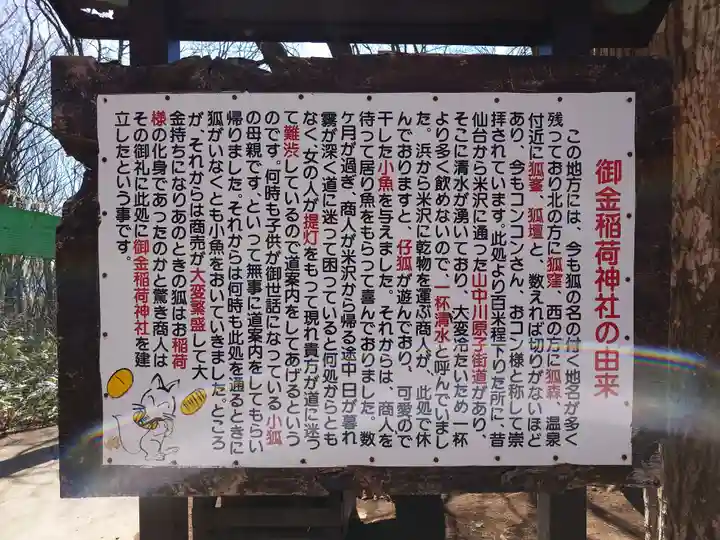 御金稲荷神社の由来
この地方には、今も狐の名の付く地名が多く
残っており北の方に狐窪、西の方に狐森、温泉
付近に狐峯、狐壇と、数えれば切りがないほど
あり、今もコンコンさん、おコン様と称して崇
拝されています。此処より百米程下りた所に、昔
仙台から米沢に通った山中川原子街道があり、
そこに清水が湧いており、大変冷たいため一杯
より多く飲めないので、一杯清水と呼んでいまし
た。浜から米沢に乾物を運ぶ商人が、此処で休
んでおりますと、仔狐が遊んでおり、可愛ので
干した小魚を与えました。それからは、商人を
待って居り魚をもらって喜んでおりました。数
ケ月が過ぎ、商人が米沢から帰る途中、日が暮れ
霧が深く道に迷って困っていると何処からとも
なく、女の人が提灯をもって現れ貴方が道に迷っ
て難渋しているので道案内をしてあげるという
のです。何時も子供が御世話になっている小狐
の母親です、といって無事に道案内をしてもらい
帰りました。それからは何時も此処を通るときに
狐がいなくとも小魚をおいていきました。ところ
が、それからは商売が大変繁盛して大
金持ちになりあのときの狐はお稲荷
様の化身であったのかと驚き商人は
その御礼に此処に御金稲荷神社を建
立したという事です。